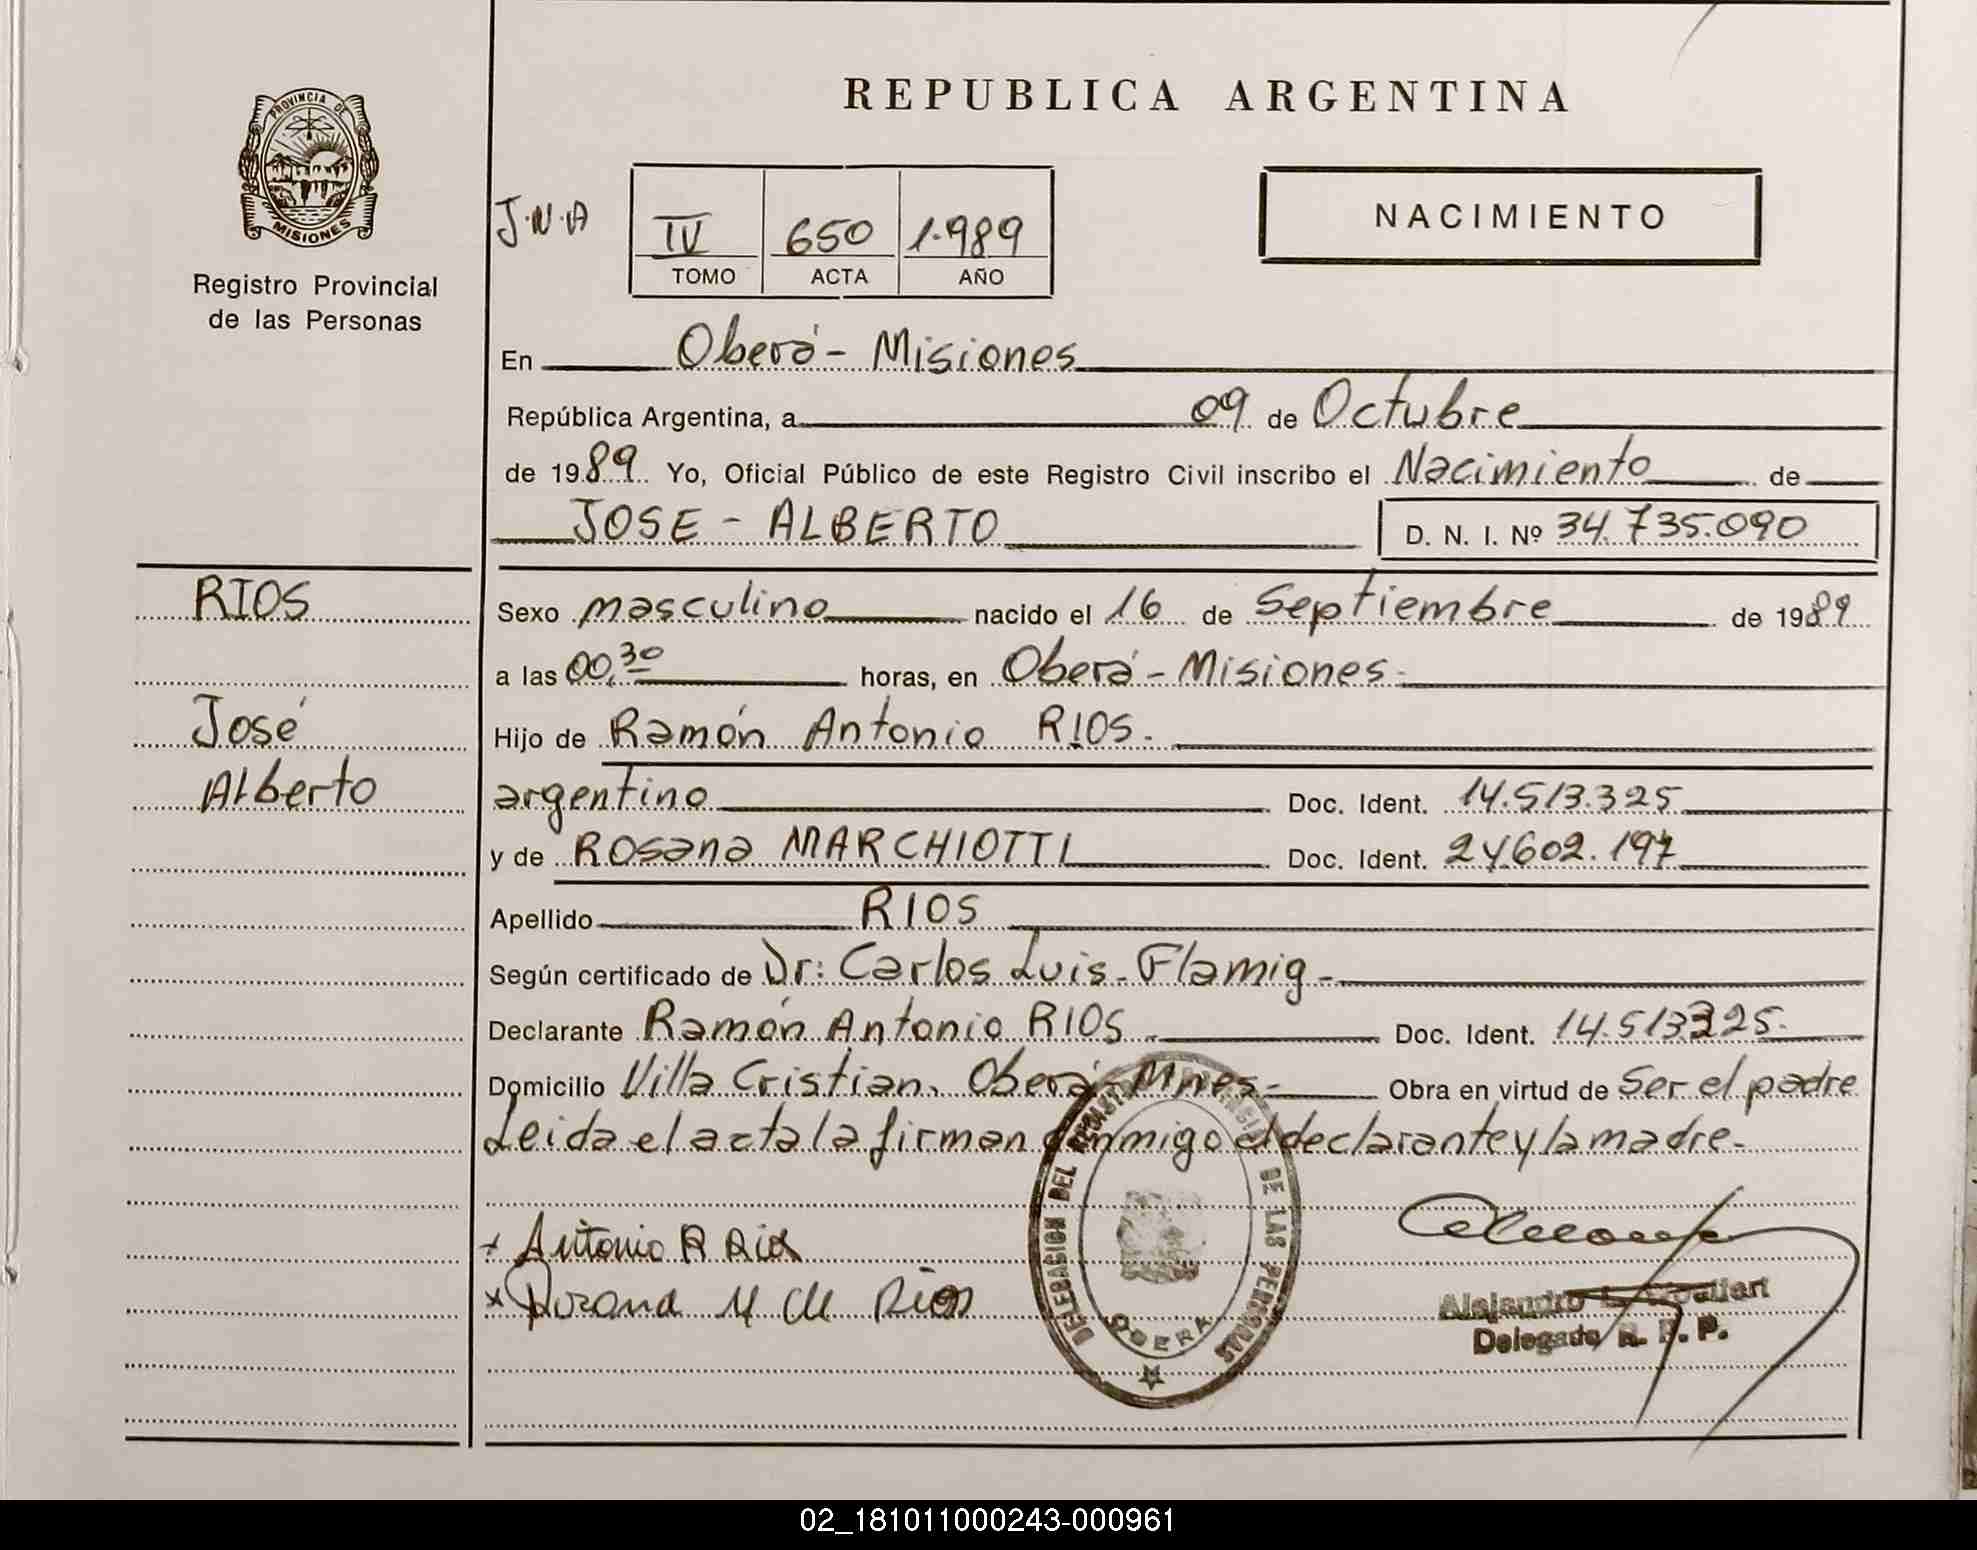 REPUBLICA ARGENTINA
PROVINCIA DE
MISIONES
Registro Provincial
de las Personas
J.N.A
IV 650 1.989
TOMO ACTA AÑO
NACIMIENTO
En Oberá - Misiones
República Argentina, a 09 de Octubre
de 1989 Yo, Oficial Público de este Registro Civil inscribo el Nacimiento de
JOSE - ALBERTO
D. N. I. Nº 34.735.090
RIOS
José
Alberto
Sexo masculino nacido el 16 de Septiembre de 1989
a las 00,30 horas, en Oberá - Misiones-
Hijo de Ramón Antonio RIOS.
argentino Doc. Ident. 14.513.325
y de Rosana MARCHIOTTI Doc. Ident. 24.602.197
Apellido RIOS
Según certificado de Dr: Carlos Luis Flamig-
Declarante Ramón Antonio RIOS Doc. Ident. 14.513325.
Domicilio Villa Cristian, Oberá - Mnes- Obra en virtud de Ser el padre
Leida el acta la firman conmigo el declarante y la madre-
x Antonio R Rios
x Rosana M de Rios
DELEGACION DEL REGISTRO PROVINCIAL DE LAS PERSONAS
OBERA
Alejandro
Delegado R. P. P.
02_181011000243-000961